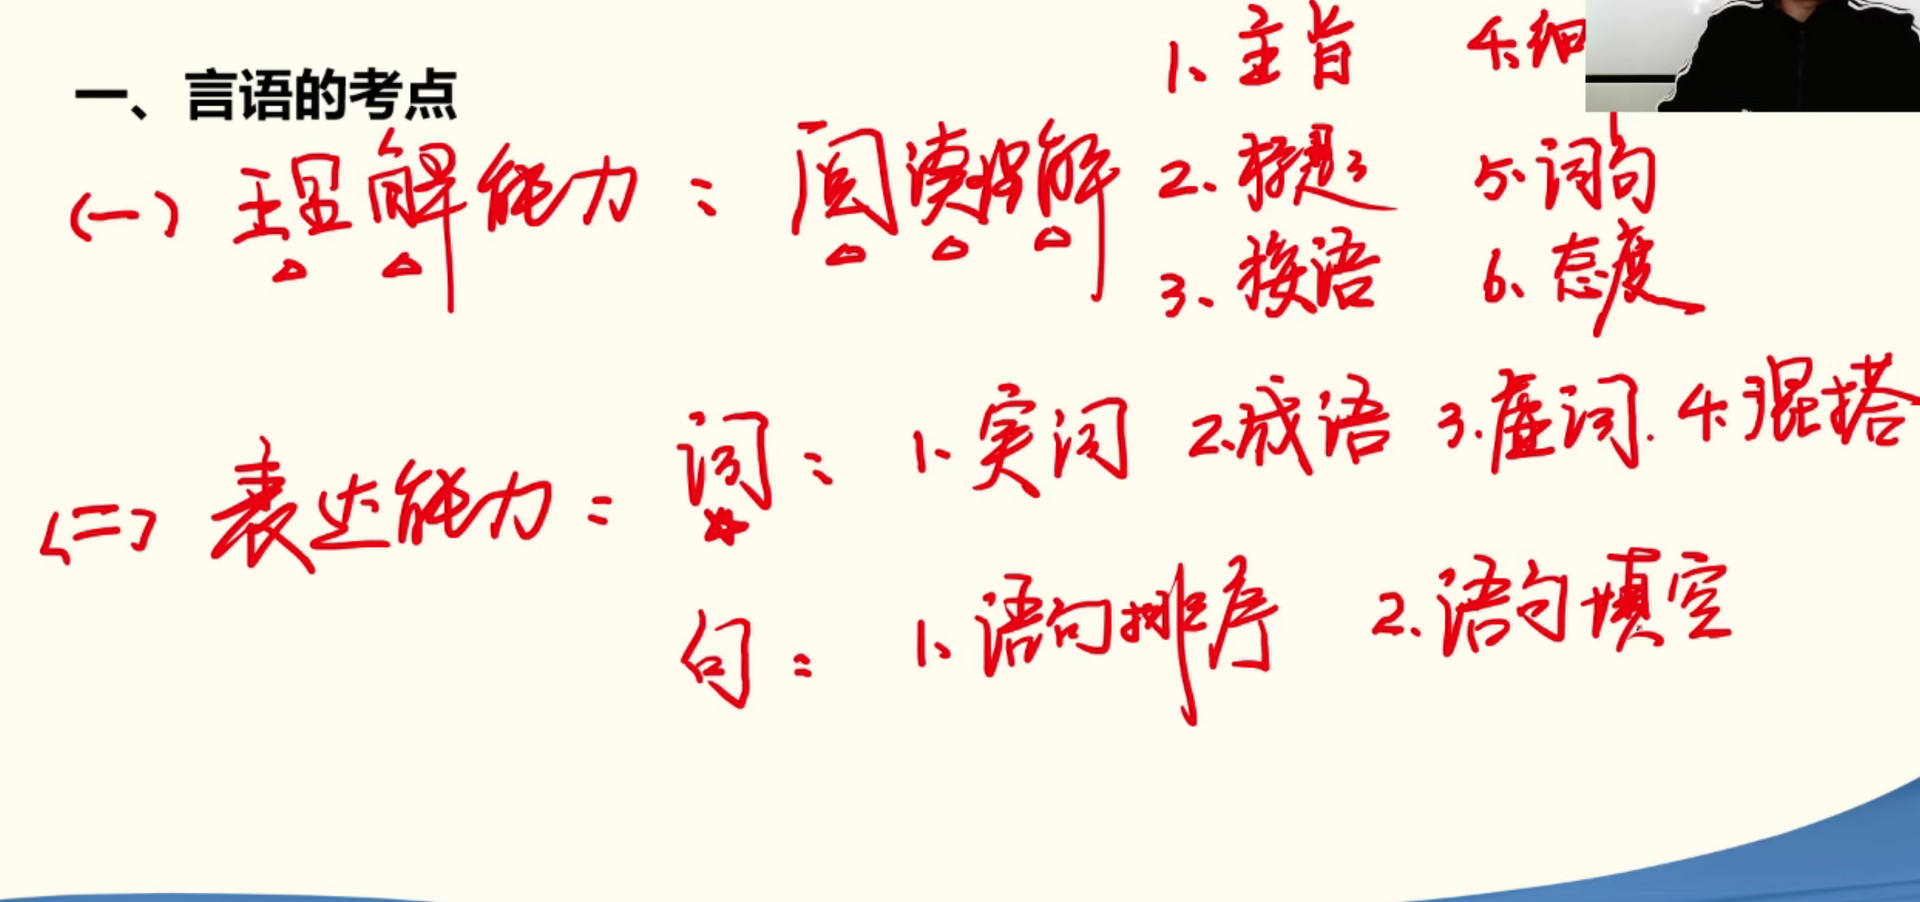 一、言语的考点
(一) 理解能力：阅读理解
1、主旨 4.细
2.标题 5.词句
3、接语 6、态度
(二) 表达能力：词：1.实词 2.成语 3.虚词. 4.混搭
句：1、语句排序 2.语句填空